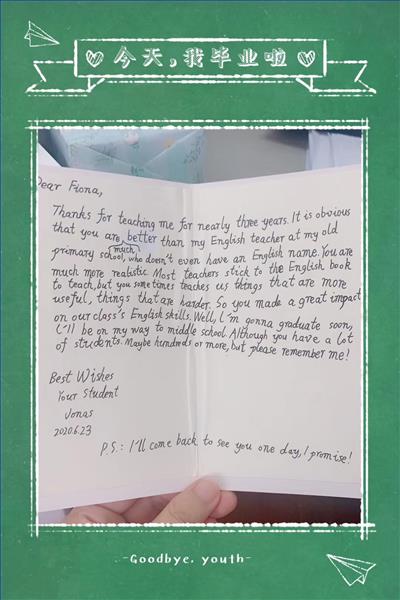 今天,我毕业啦
Dear Fiona,
Thanks for teaching me for nearly three years. It is obvious
that you are much better than my English teacher at my old
primary school, who doesn't even have an English name. You are
much more realistic. Most teachers stick to the English book
to teach, but you some times teaches us things that are more
useful, things that are harder. So you made a great impact
on our class's English skills. Well, I'm gonna graduate soon,
I'll be on my way to middle school. Although you have a lot
of students. Maybe hundreds or more, but please remember me!
Best Wishes
Your Student
Jonas
2020.6.23
P.S.: I'll come back to see you one day, I promise!
-Goodbye. youth-